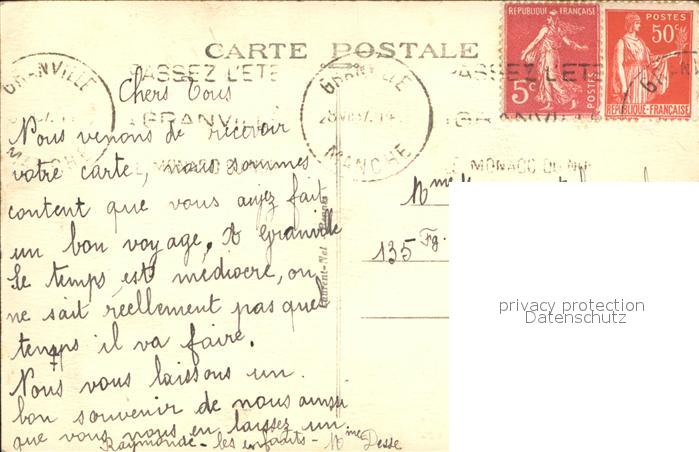 CARTE POSTALE
RÉPUBLIQUE FRANÇAISE
5c POSTES
POSTES
50c
RÉPUBLIQUE FRANÇAISE
GRANVILLE
MANCHE
PASSEZ L'ETE
GRANVILLE
LE MONACO DU
GRANVILLE
MANCHE
PASSEZ L'ETE
GRANVILLE
LE MONACO DU NORD
Chers Tous
Nous venons de recevoir
votre carte, nous sommes
content que vous ayez fait
un bon voyage. A Granville
le temps est médiocre, on
ne sait réellement pas quel
temps il va faire.
Nous vous laissons un
bon souvenir de nous aussi
que vous nous en laissez un.
Raymonde - les enfants - Mme Desse
Laurent-Nel Rennes
Mme
135 Fg.
privacy protection
Datenschutz